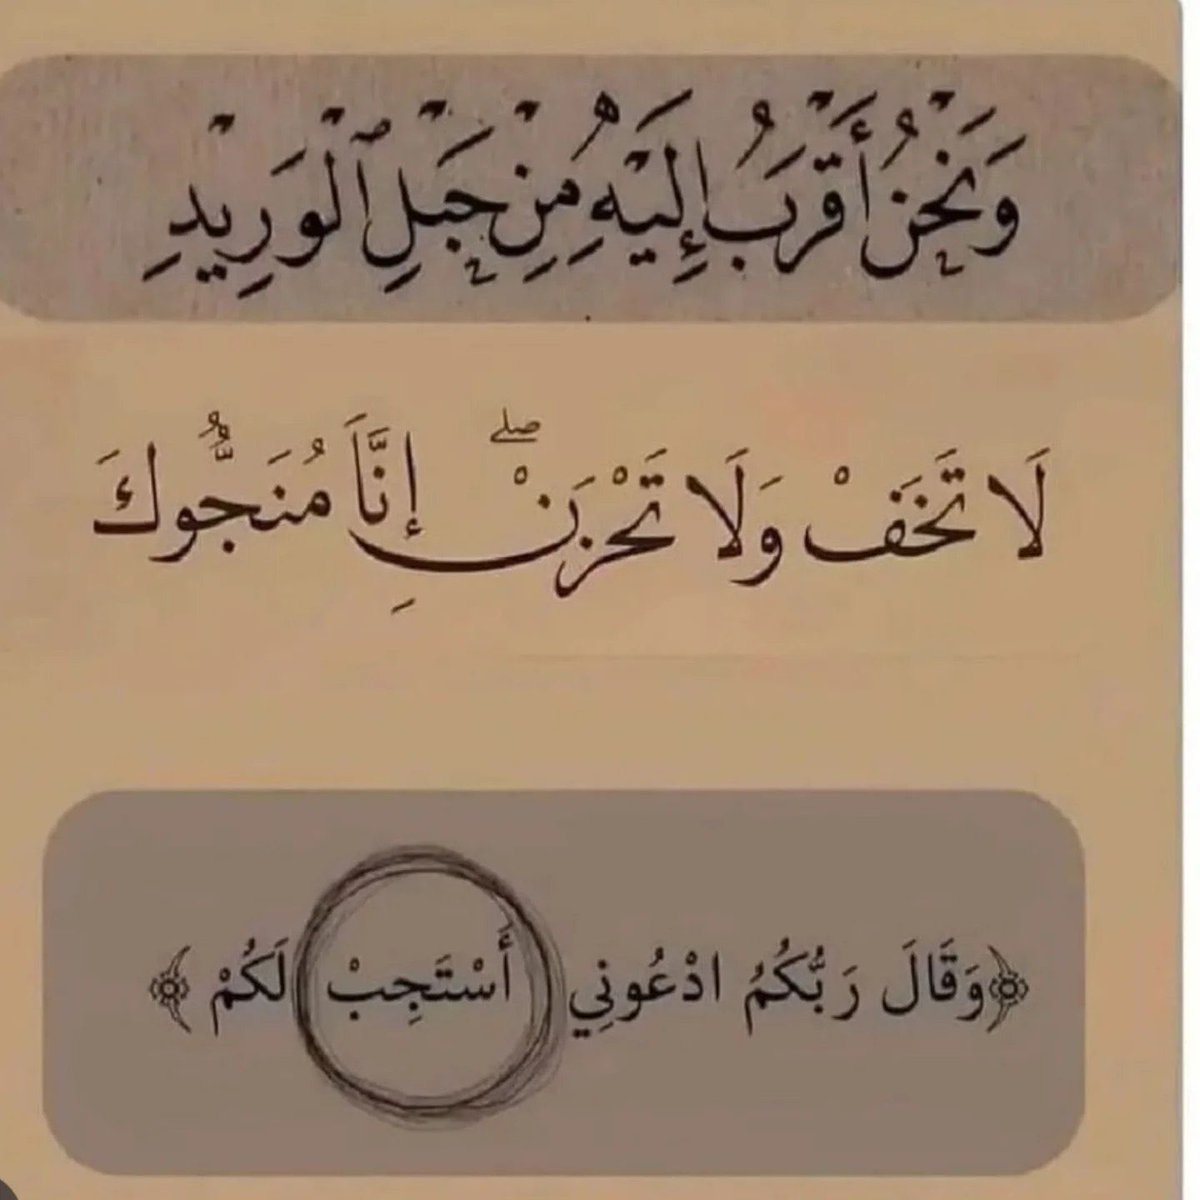 وَنَحْنُ أَقْرَبُ إِلَيْهِ مِنْ حَبْلِ ٱلْوَرِيدِ
لَا تَخَفْ وَلَا تَحْزَنْ ۖ إِنَّا مُنَجُّوكَ
﴿وَقَالَ رَبُّكُمُ ادْعُونِي أَسْتَجِبْ لَكُمْ﴾